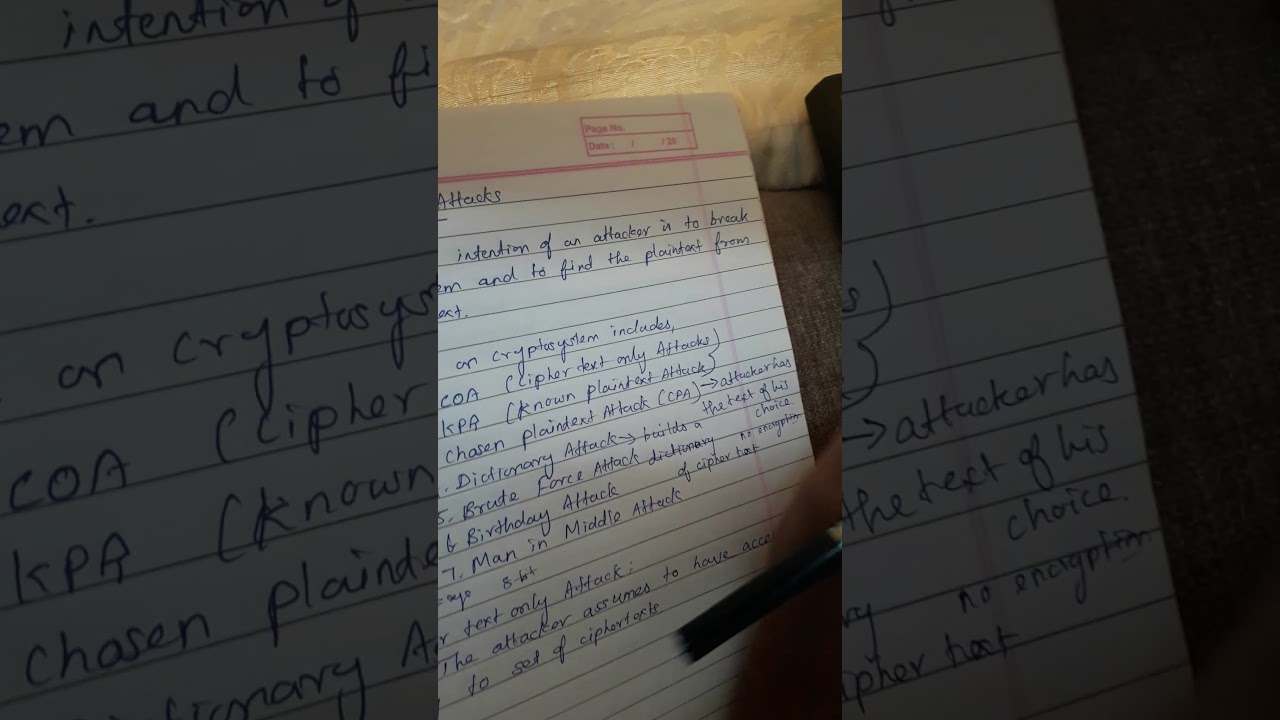 Page No.
Date: / /20
Attacks
intention of an attacker is to break
em and to find the plaintext from
ext.
an cryptosystem includes,
COA (Cipher text only Attacks)
KPA (Known plaintext Attack)
chosen plaintext Attack (CPA) → attacker has
the text of his
choice
. Dictionary Attack → builds a
dictionary no encryption
of cipher text
5. Brute Force Attack
6 Birthday Attack
7. Man in Middle Attack
8 bit
r text only Attack:
The attacker assumes to have acce
to set of ciphertexts